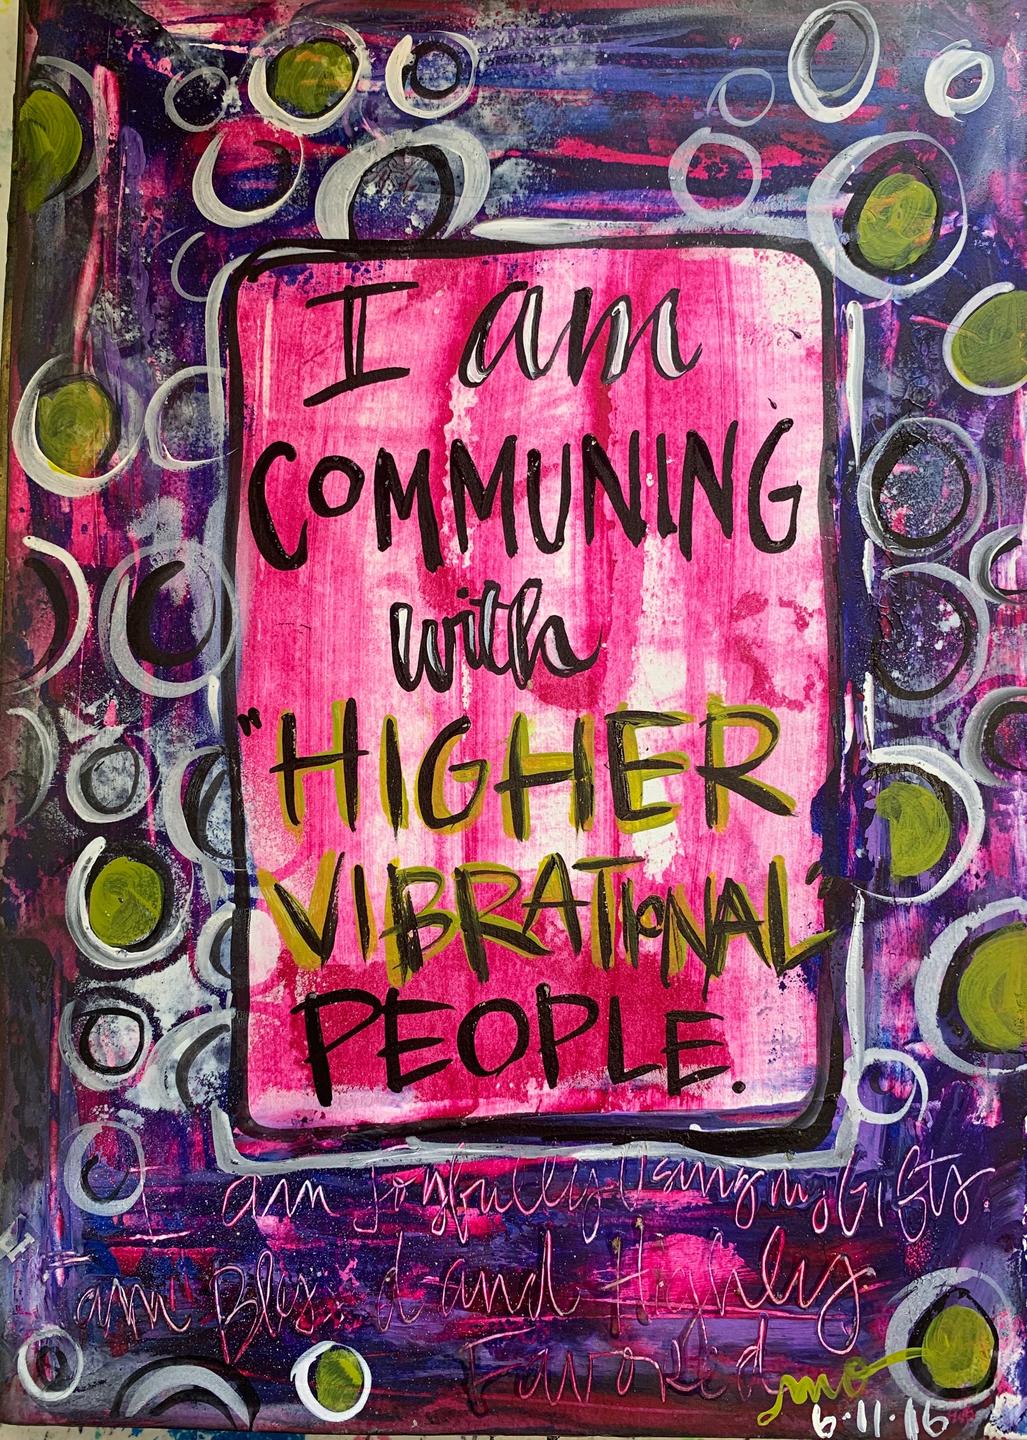 I am
COMMUNING
with
"HIGHER
VIBRATIONAL"
PEOPLE.
I am Joyfully Using my Gifts.
I
am Blessed and Highly
Favored
mo
6.11.16